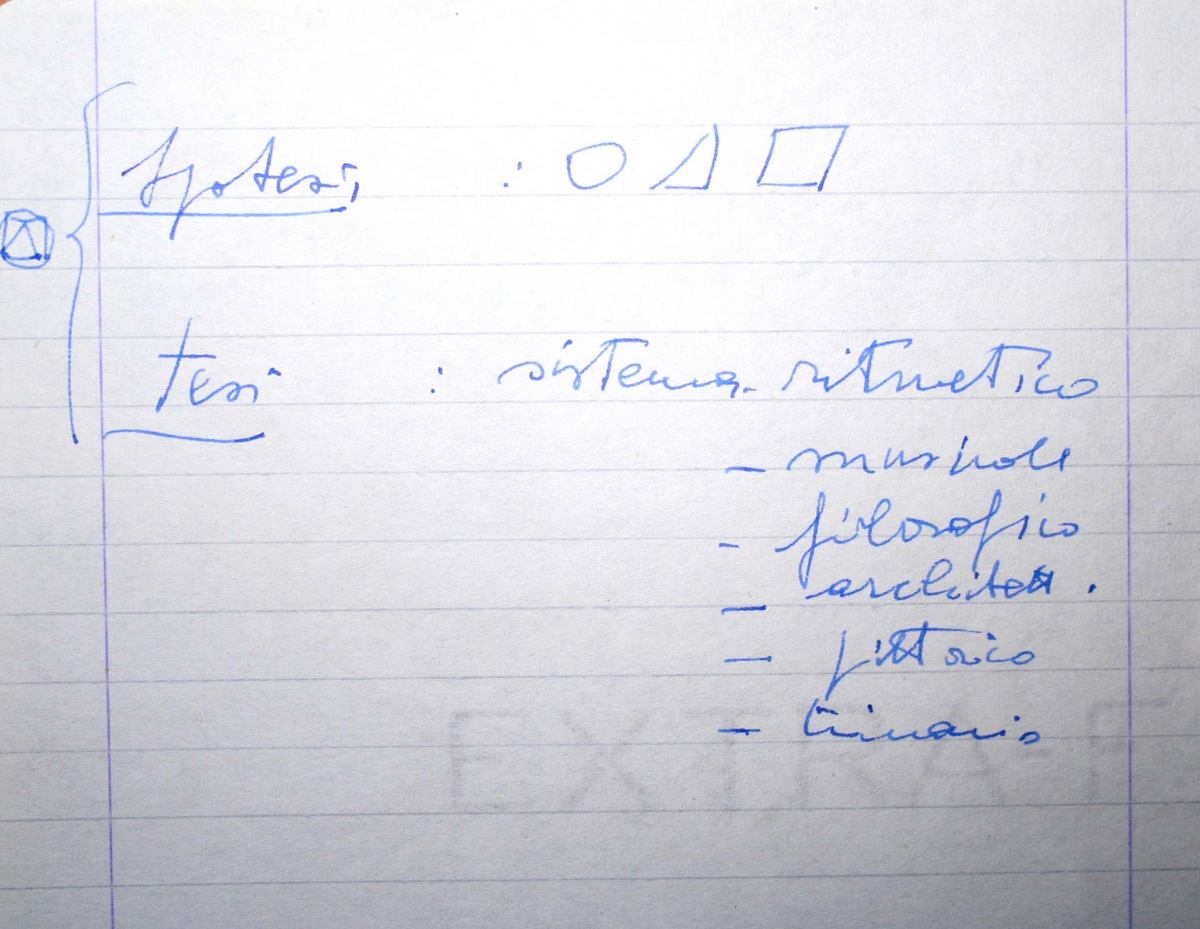 Ipotesi :
tesi : sistema ritmetico
- musicale
- filosofico
- architett.
- pittorico
- trinario